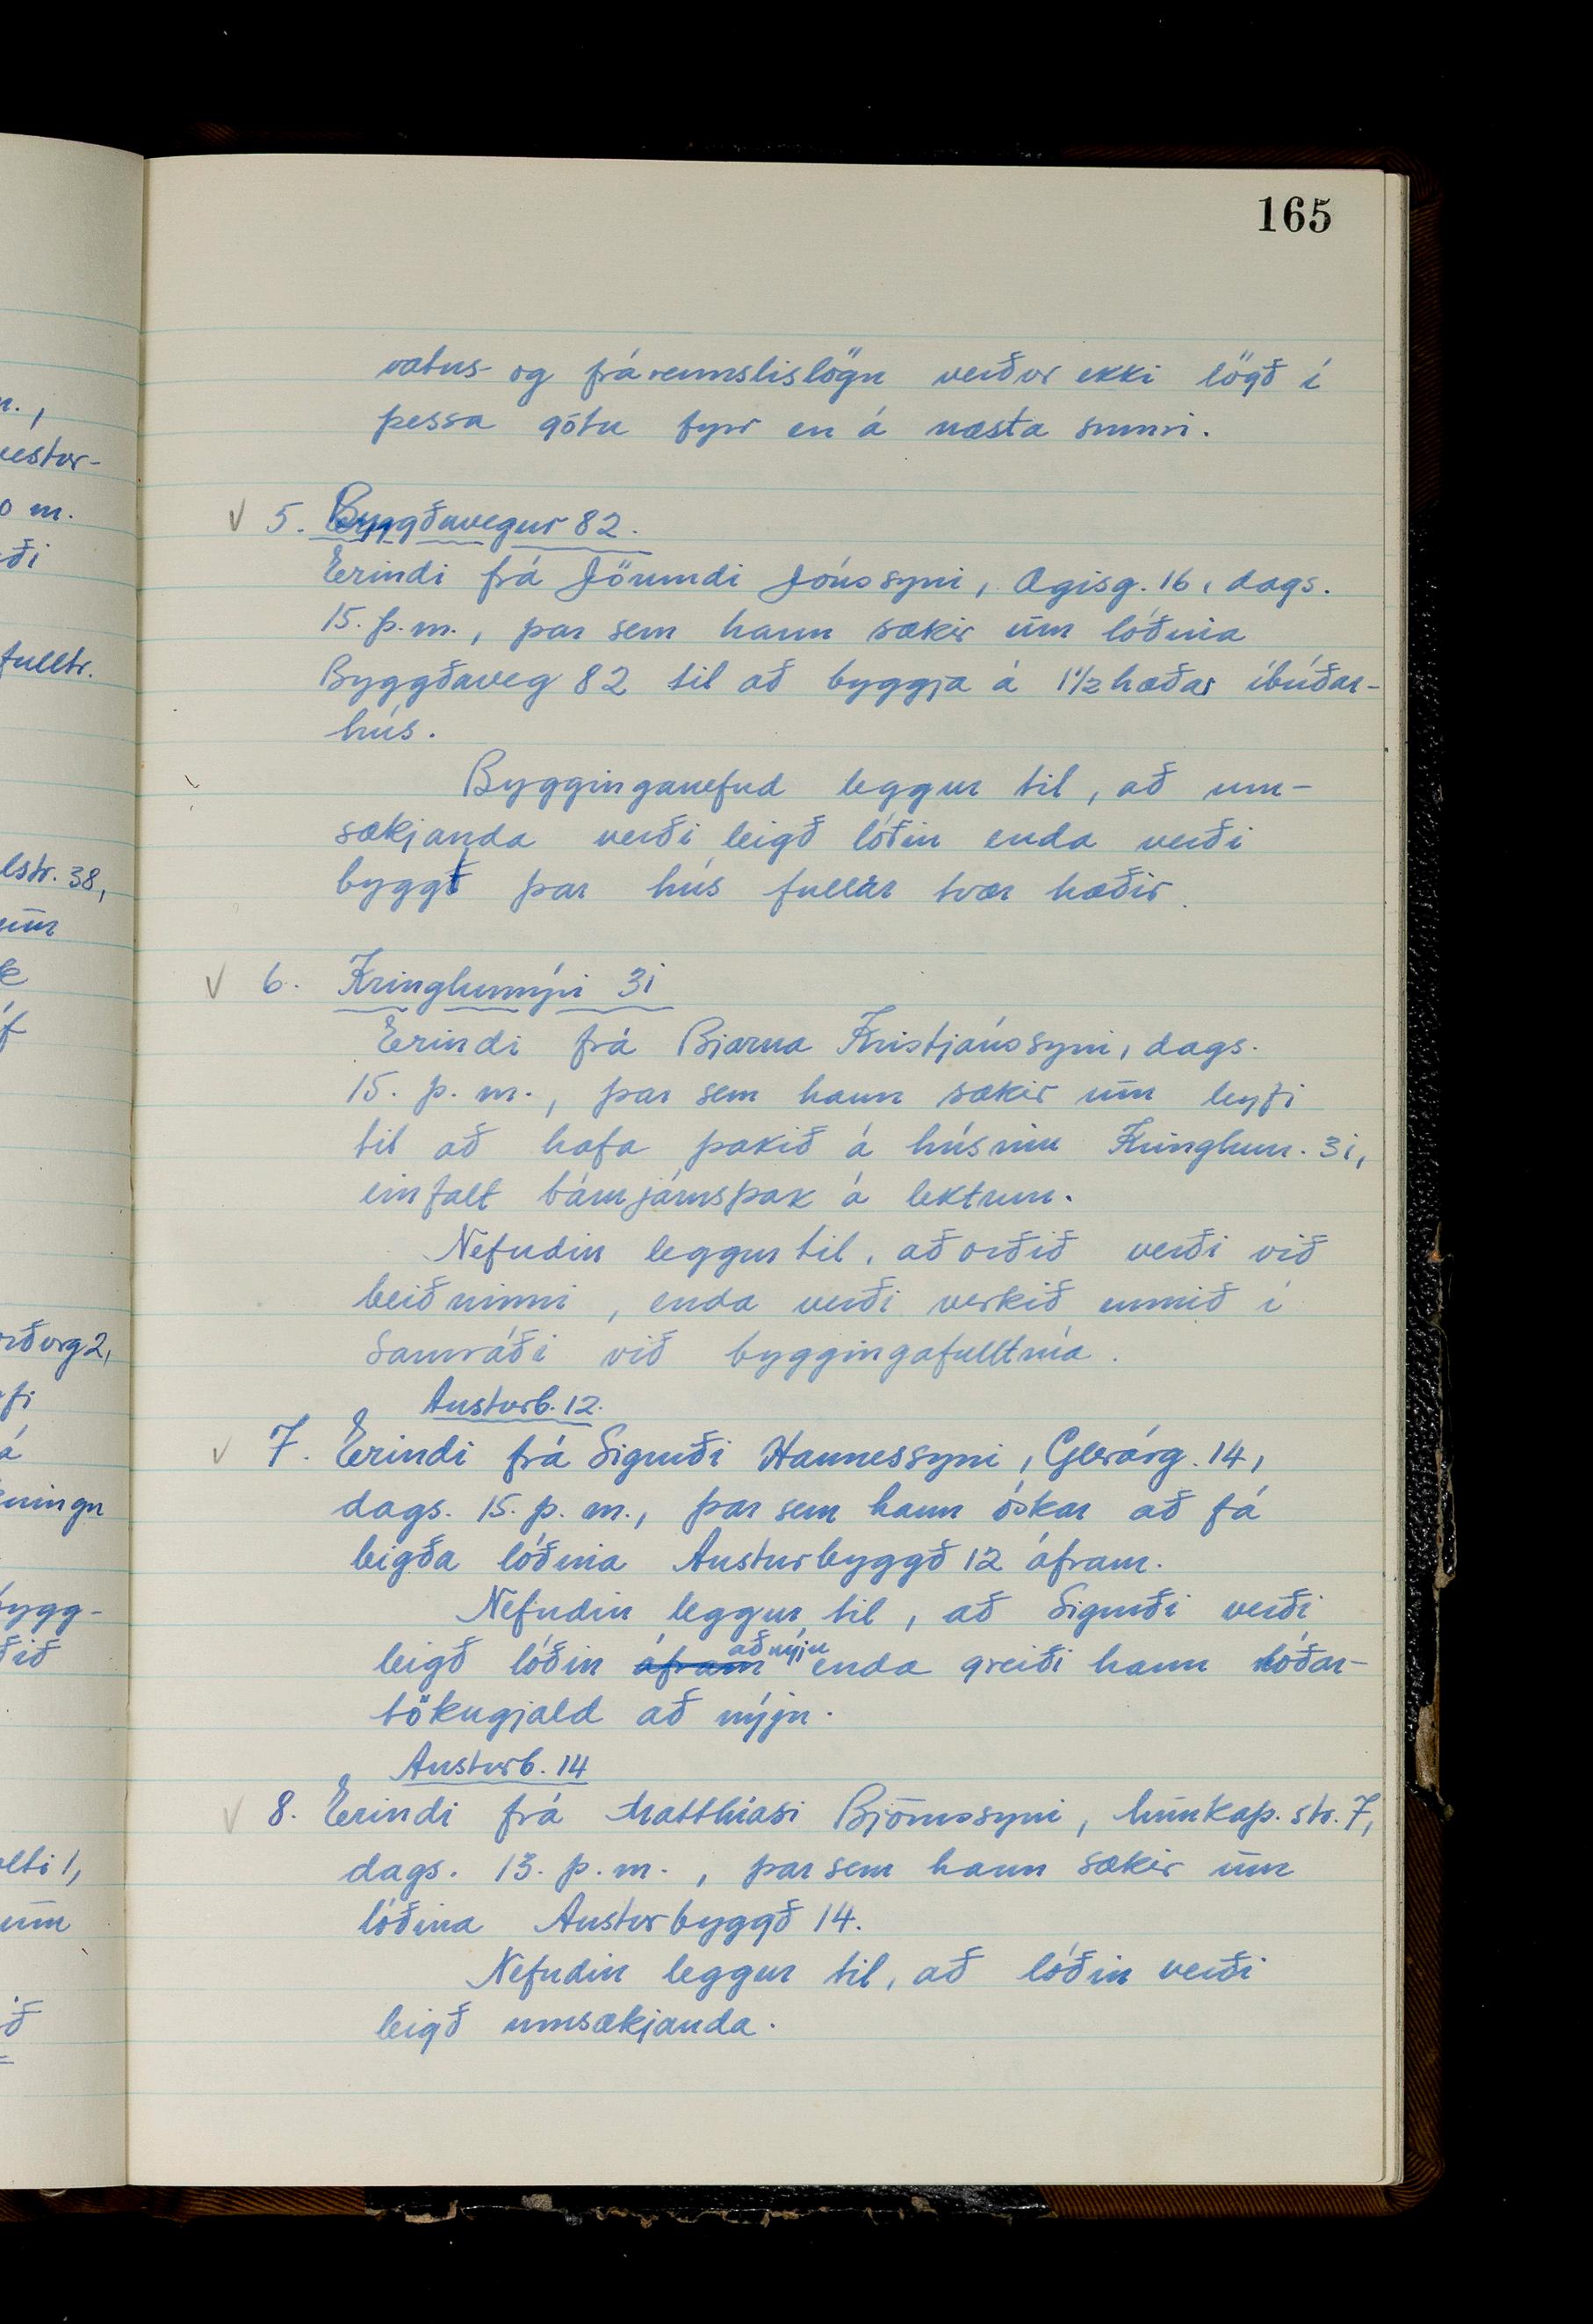 165
vatns- og frárennslislögn verður ekki lögð í
þessa götu fyrr en á næsta sumri.
✓ 5. Byggðavegur 82.
Erindi frá Jörundi Jónssyni, Ægisg. 16, dags.
15. þ.m., þar sem hann sækir um lóðina
Byggðaveg 82 til að byggja á 1½ hæðar íbúðar-
hús.
Bygginganefnd leggur til, að um-
sækjanda verði leigð lóðin enda verði
byggt þar hús fullar tvær hæðir.
✓ 6. Kringlumýri 31
Erindi frá Bjarna Kristjánssyni, dags.
15. þ. m., þar sem hann sækir um leyfi
til að hafa þakið á húsinu Kringlum. 31,
einfalt bárujárnsþak á lektum.
Nefndin leggur til, að orðið verði við
beiðninni, enda verði verkið unnið í
samráði við byggingafulltrúa.
Austurb. 12.
✓ 7. Erindi frá Sigurði Hannessyni, Glerárg. 14,
dags. 15. þ. m., þar sem hann óskar að fá
leigða lóðina Austurbyggð 12 áfram.
Nefndin leggur til, að Sigurði verði
leigð lóðin áfram að nýju enda greiði hann lóðar-
tökugjald að nýju.
Austurb. 14
✓ 8. Erindi frá Matthíasi Björnssyni, Munkaþ.str. 7,
dags. 13. þ. m., þar sem hann sækir um
lóðina Austurbyggð 14.
Nefndin leggur til, að lóðin verði
leigð umsækjanda.